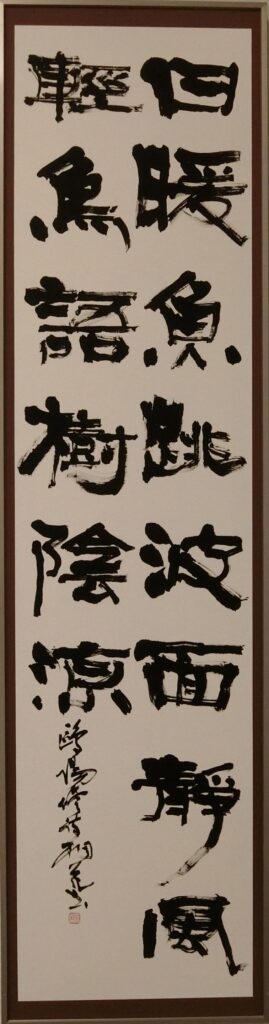 日暖魚跳波面靜風
輕鳥語樹陰涼
歐陽修詩